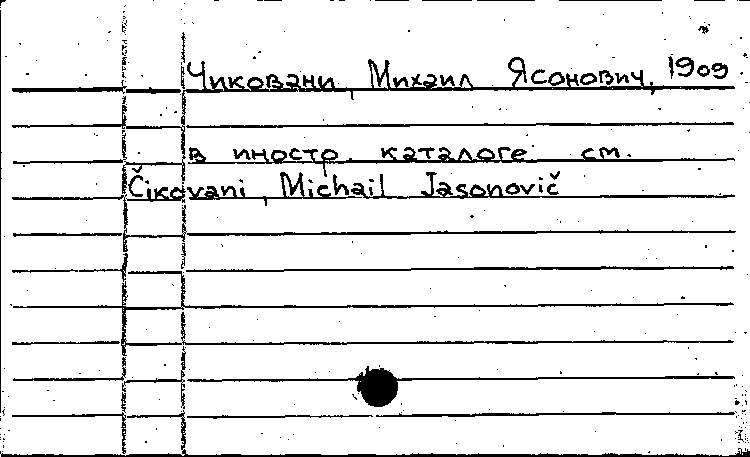 Чиковани, Михаил Ясонович, 1909
в иностр. каталоге см.
Čikovani, Michail Jasonovič